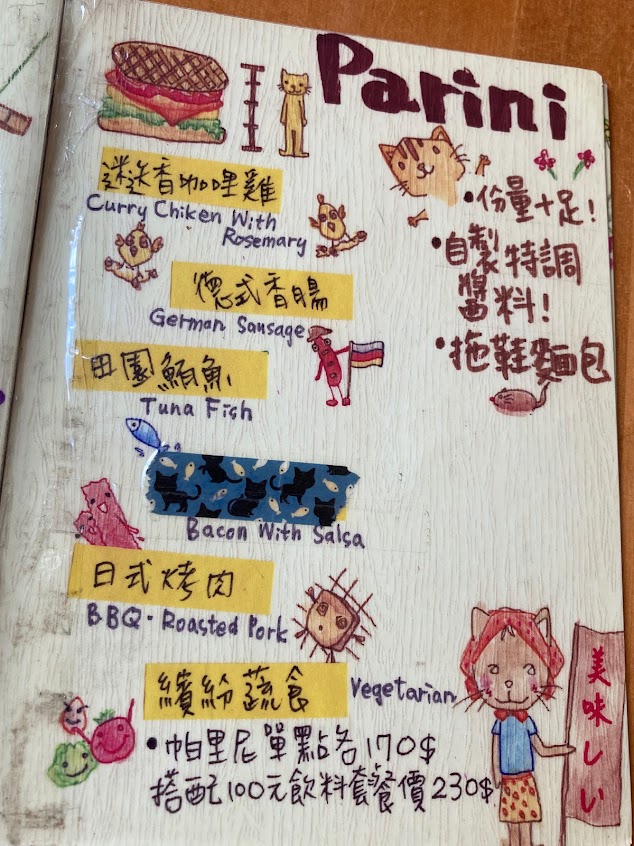 Parini
迷迭香咖哩雞
Curry Chiken With
Rosemary
德式香腸
German Sausage
田園鮪魚
Tuna Fish
Bacon With Salsa
日式烤肉
BBQ・Roasted Pork
繽紛蔬食
Vegetarian
•帕里尼單點各170$
搭配100元飲料套餐價230$
•份量十足!
•自製特調
醬料!
•拖鞋麵包
美味しい